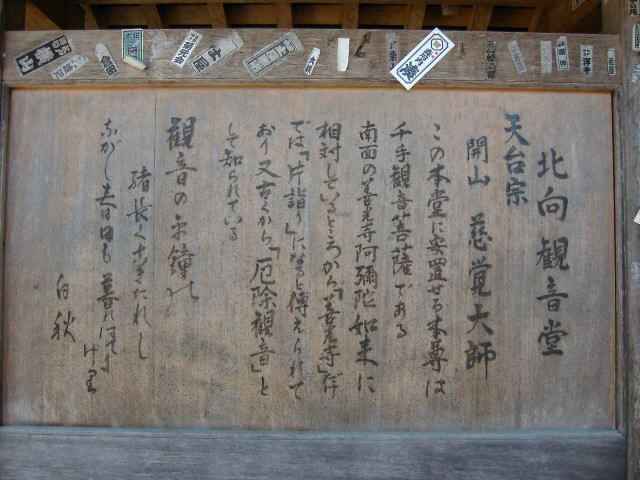 北向観音堂
天台宗
開山 慈覚大師
この本堂に安置せる本尊は
千手観音菩薩である
南面の善光寺阿彌陀如来に
相対しているところから「善光寺」だけ
では「片詣り」になると傳えられて
おり又古くから「厄除観音」と
して知られている
観音の 鐘の
緒長く たれし
ながし春日も暮れ
けり
白秋